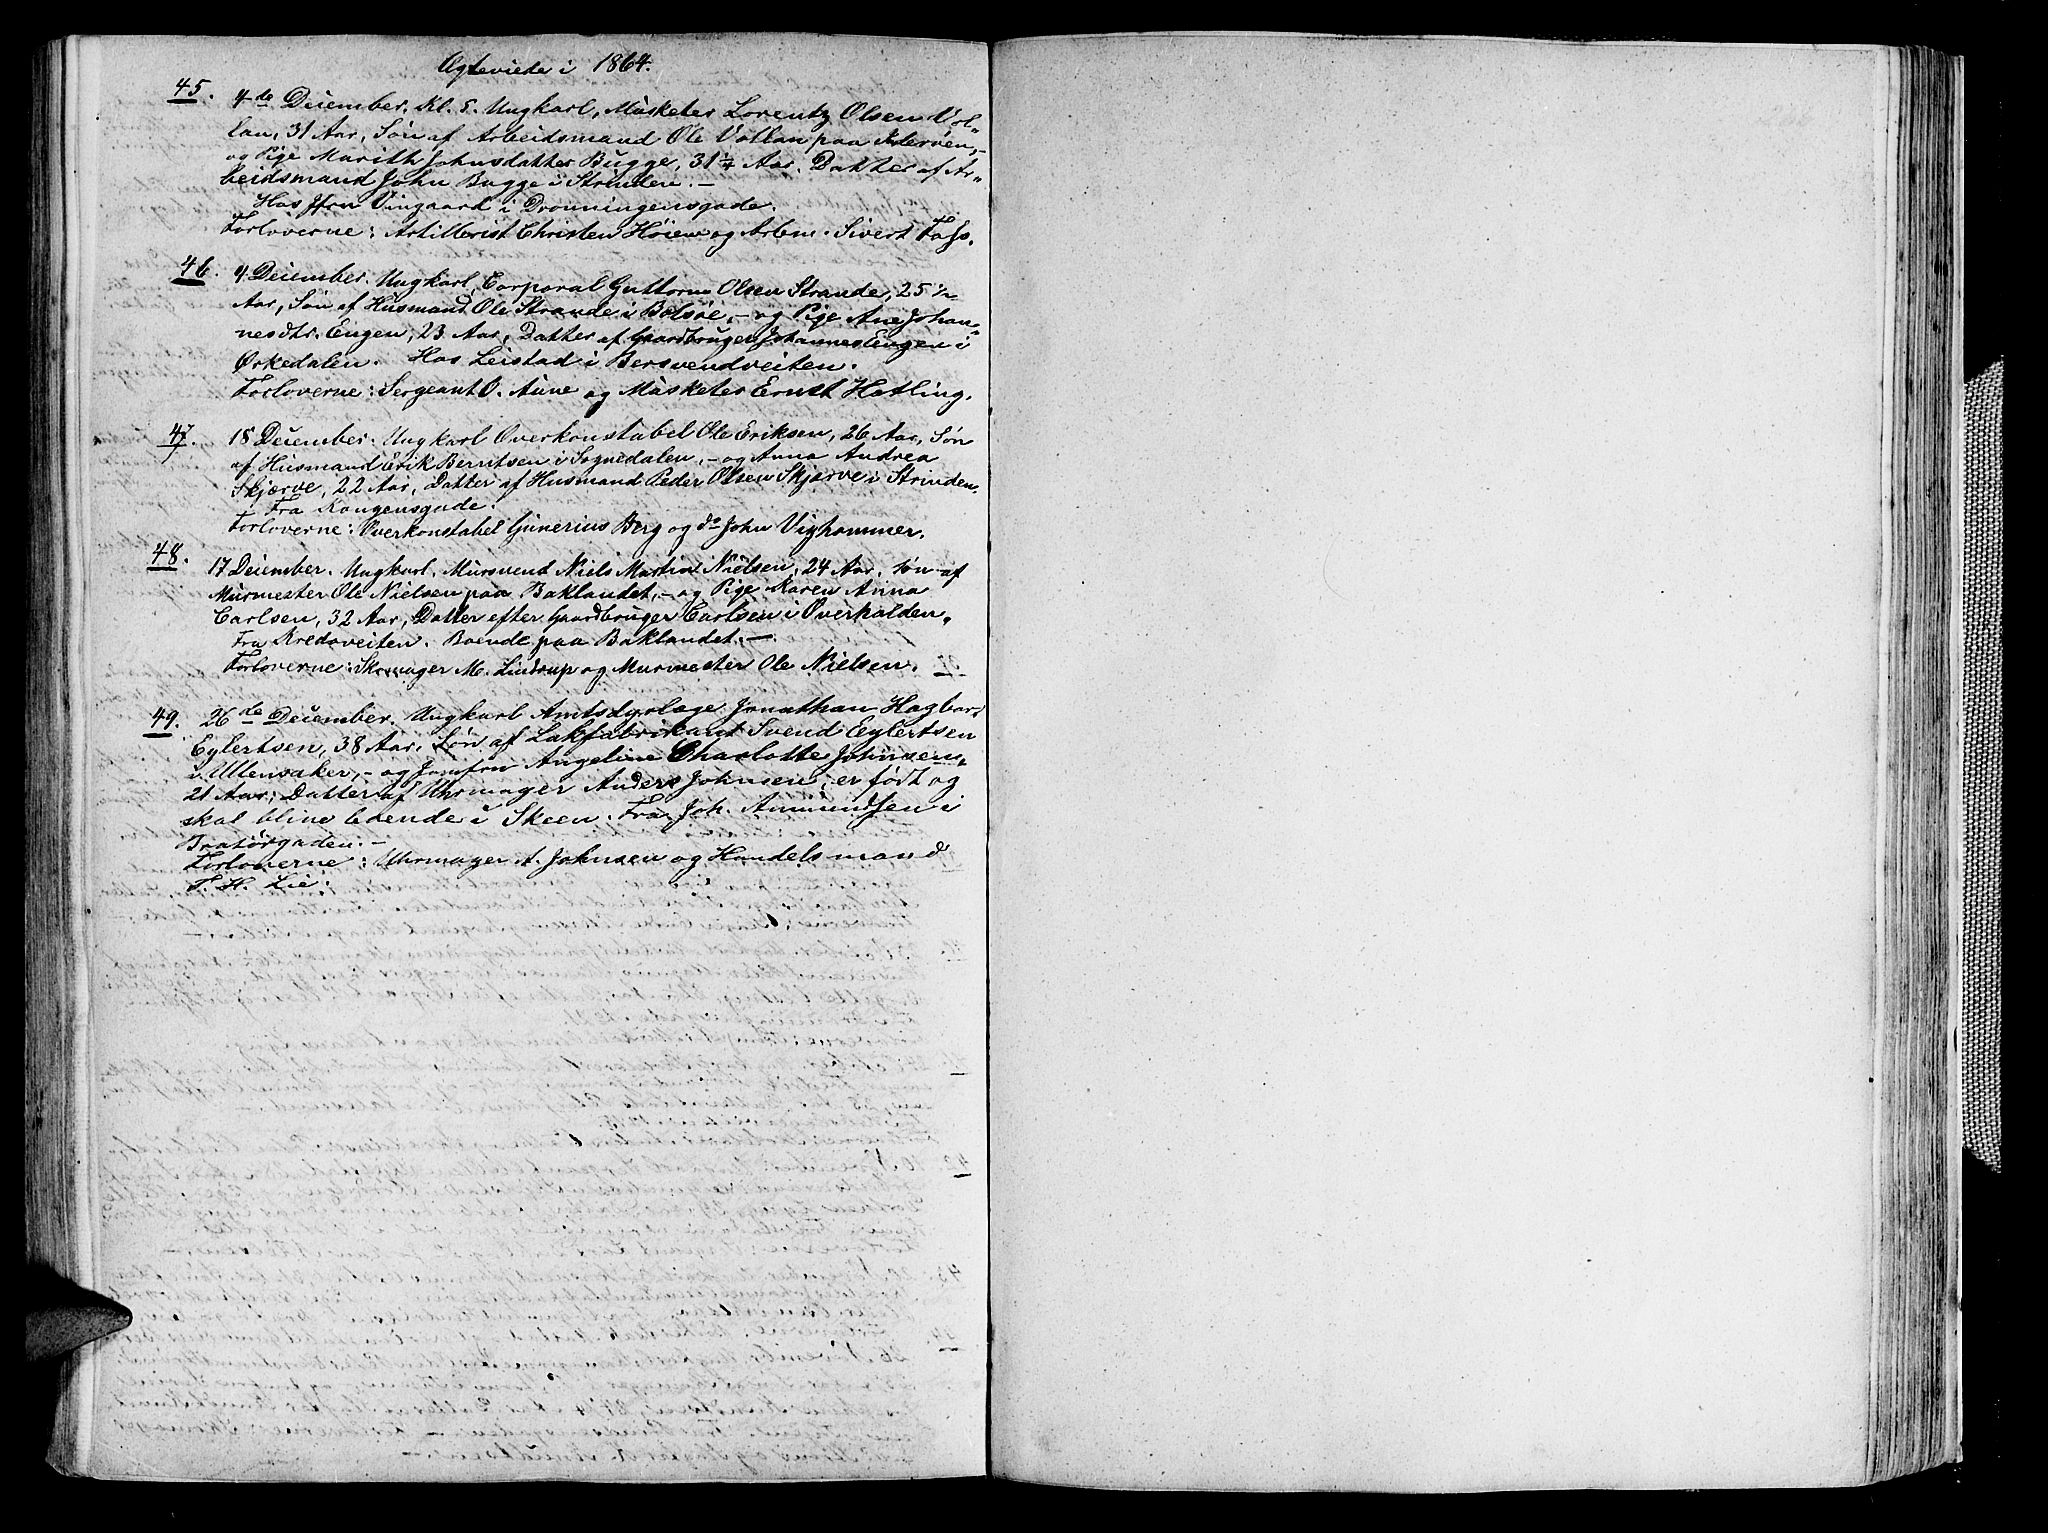 Ægteviede i 1864.
45. 4de December. Kl. 5. Ungkarl, Musketer Lorentz Olsen Vol-
lan, 31 Aar, Søn af Arbeidsmand Ole Vollan paa Inderøen,-
og Pige Marith Johnsdatter Bugge, 31 1/4 Aar. Datter af Ar-
beidsmand John Bugge i Strinden.-
Hos Jfru Vingaard i Dronningensgade.
Forloverne: Artillerist Christen Høien og Arbm. Sivert
46. 4 December. Ungkarl, Corporal Guttorm Olsen Strande, 25 1/2
Aar, Søn af Husmand Ole Strande i Bolsøe,- og Pige Ane Johan-
nesdtr. Engen, 23 Aar, Datter af Gaardbruger Johannes Engen i
Ørkedalen. Hos Leistad i Bersvendveiten.
Forloverne: Sergeant O. Aune og Musketer Ernst Hatling.
47. 18 December. Ungkarl Overkonstabel Ole Eriksen, 26 Aar, Søn
af Husmand Erik Berntsen i Sognedalen,- og Anna Andrea
Skjærve, 22 Aar, Datter af Husmand Peder Olsen Skjærve i Strinden.
Fra Kongensgade.
Forloverne: Overkonstabel Gunerius Berg og do John Vighammer.
48. 17 December. Ungkarl, Mursvend Niels Martin Nielsen, 24 Aar, Søn af
Murmester Ole Nielsen paa Baklandet,- og Pige Karen Anna
Carlsen, 32 Aar, Datter efter Gaardbruger Carlsen i Overhalden.
Fra Kredoveiten. Boende paa Baklandet.-
Forloverne: Skomager M. Lindrup og Murmester Ole Nielsen.
49. 26de December. Ungkarl Amtsdyrlæge Jonathan Hagbart
Eylertsen, 38 Aar. Søn af Lakfabrikant Svend Eylertsen
i Ullensaker,- og Jomfru Angeline Charlotte Johnsen,
21 Aar, Datter af Uhrmager Anders Johnsen; er født og
skal blive boende i Skeen. Fra Joh. Amundsen i
Bratørgaden.-
Forloverne: Uhrmager A. Johnsen og Handelsmand
T. H. Lie.